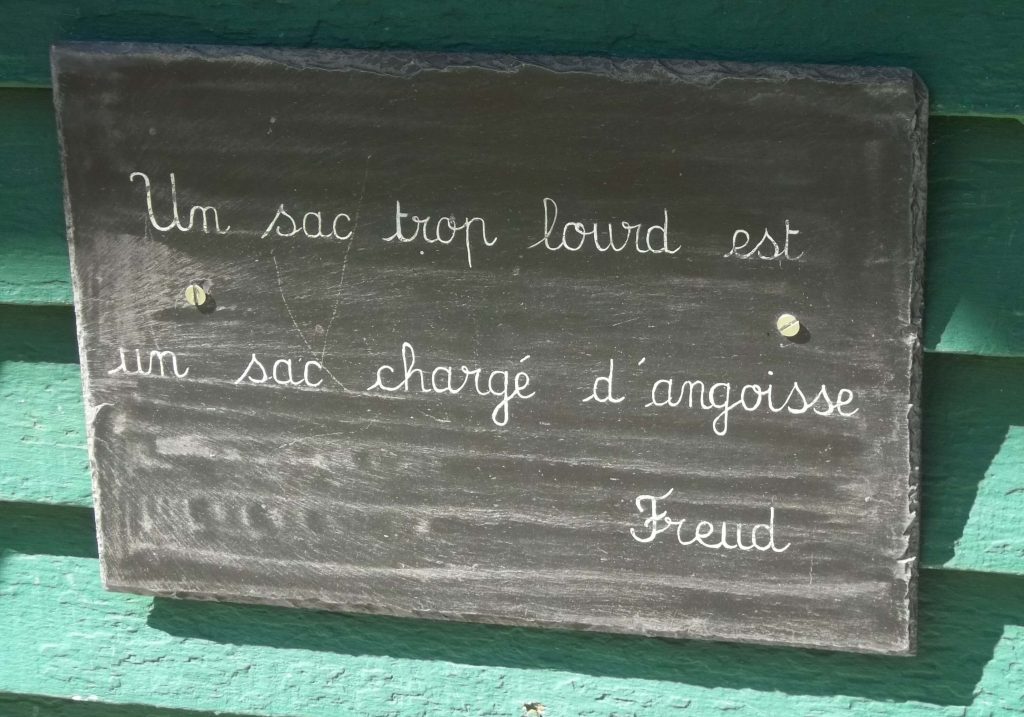 Un sac trop lourd est
un sac chargé d'angoisse
Freud